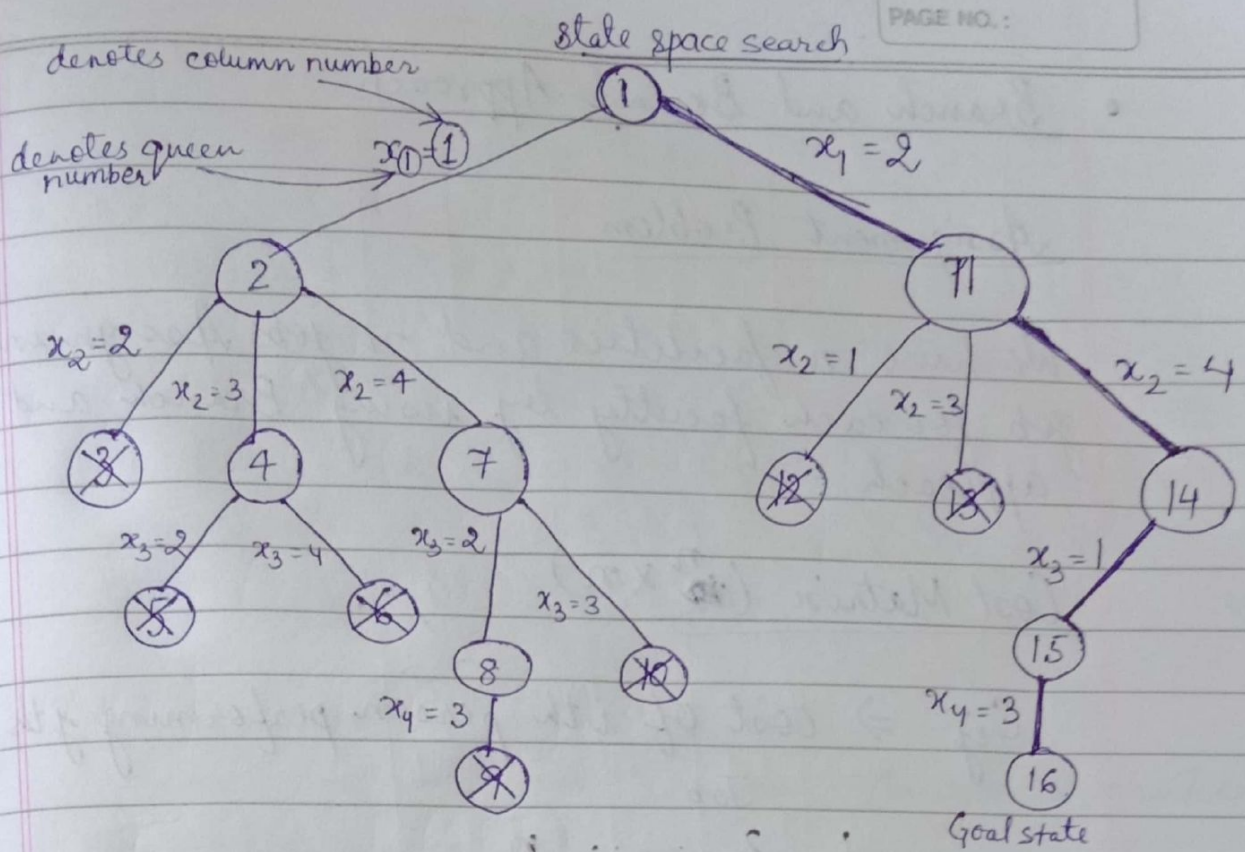 PAGE NO.:
state space search
denotes column number
1
x₁ = 1
x₁ = 2
denotes queen
number
2
11
x₂ = 2
x₂ = 3
x₂ = 4
x₂ = 1
x₂ = 3
x₂ = 4
3
4
7
12
13
14
x₃ = 2
x₃ = 4
x₃ = 2
x₃ = 3
x₃ = 1
5
6
8
10
15
x₄ = 3
x₄ = 3
9
16
Goal state